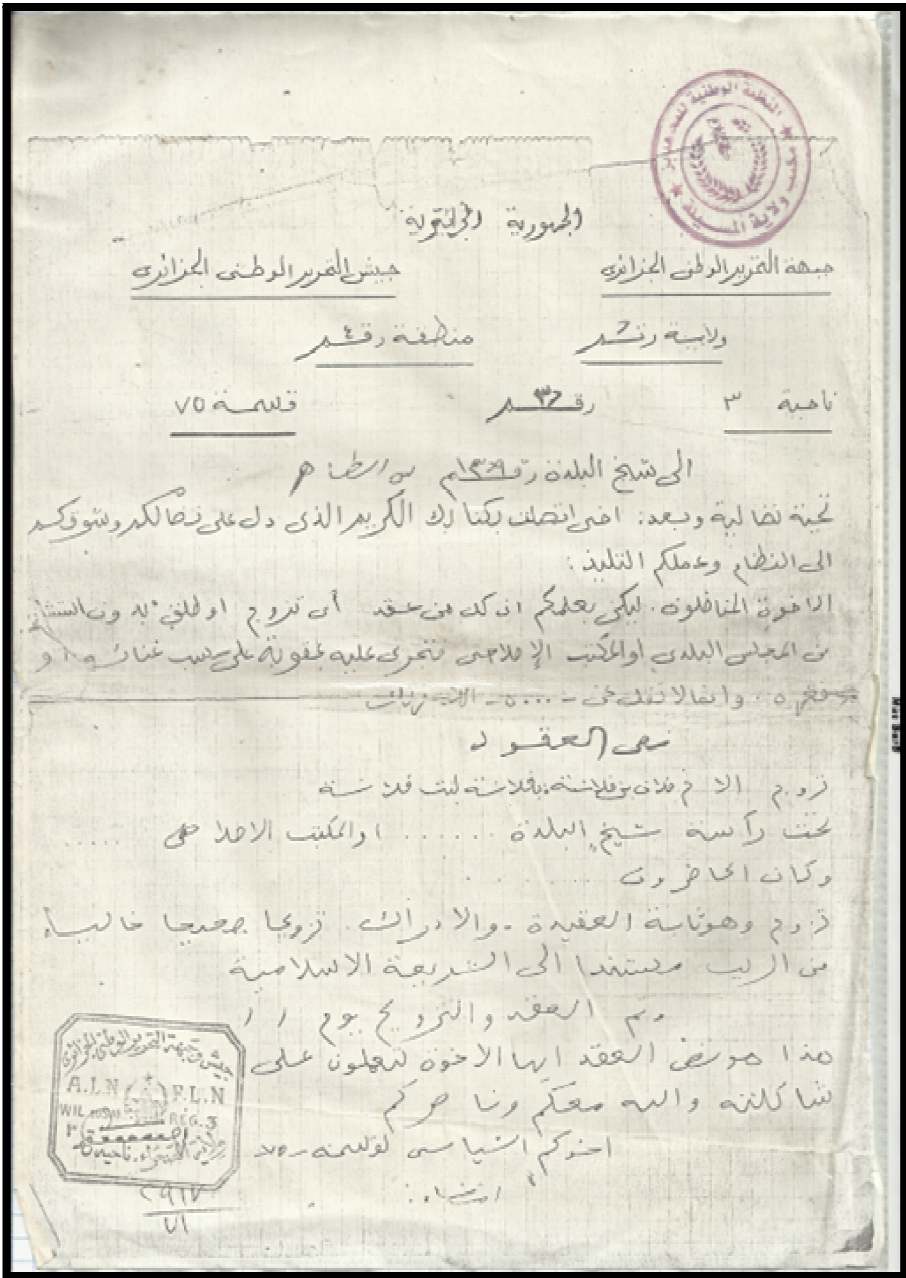 المنظمة الوطنية للمجاهدين
مكتب ولاية المسيلة
الجمهورية الجزائرية
جبهة التحرير الوطنى الجزائرى جيش التحرير الوطنى الجزائرى
ولاية رقم 6 منطقة رقم ٤
ناحية ٣ رقم ٣٦ قسمة ٧٥
الى شيخ البلدة رقم
تحية نضالية وبعد: اخى اتصلت بكتابك الكريم الذى دل على نضالكم وشوقكم
الى النظام وعملكم التليد:
الاخوة المناضلون. ليكن بعلمكم ان كل من عقد أى تزوج او طلق بدون
من المجلس البلدى او المكتب الإصلاحى فتجرى عليه عقوبة على حسب
نص العقود
تزوج الاخ فلان بن فلان بفلانة بنت فلانة
تحت رآسة شيخ البلدة ...... او المكتب الاصلاحى .....
وكان الحاضرون ........
تزوج وهو ثابتة العقيدة. والادراك. تزويجا صحيحا خاليا
من الريب مستندا الى الشريعة الاسلامية
وتم العقد والتزويج يوم / /
هذا هو نص العقد ايها الاخوة لتعملون على
شاكلته والله معكم وناصركم
اخوكم السياسى لقسمة ٧٥
جيش وجبهة التحرير الوطنى الجزائرى
A.L.N F.L.N
WIL REG. 3